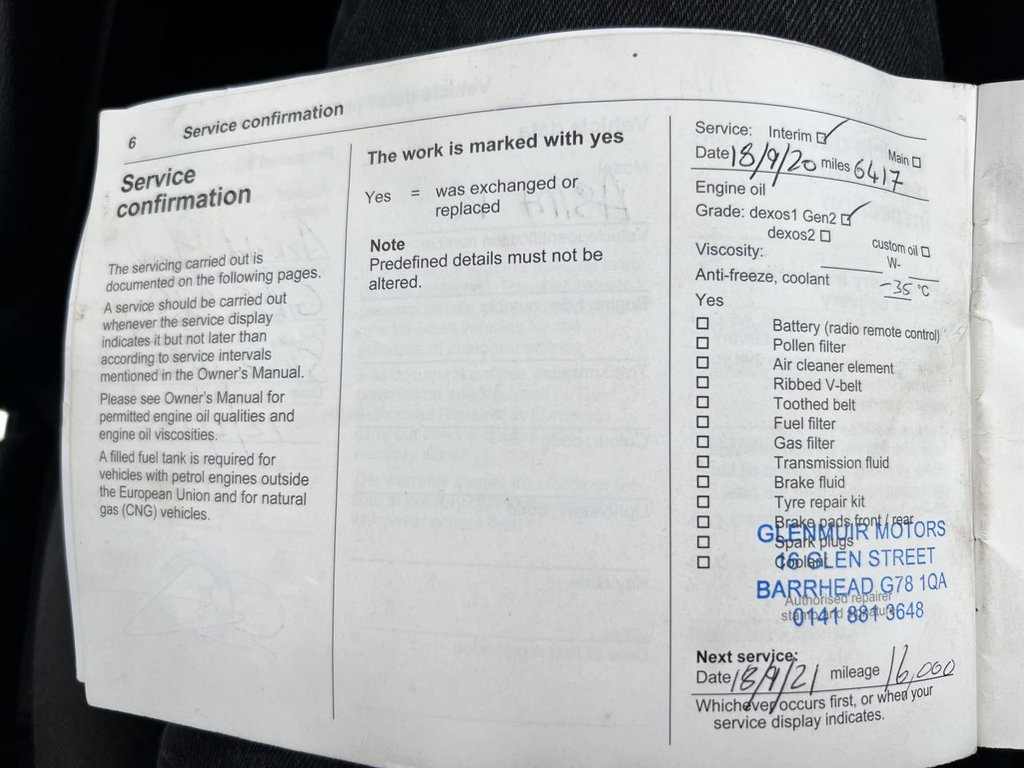 6 Service confirmation
Service
confirmation
The servicing carried out is
documented on the following pages.
A service should be carried out
whenever the service display
indicates it but not later than
according to service intervals
mentioned in the Owner's Manual.
Please see Owner's Manual for
permitted engine oil qualities and
engine oil viscosities.
A filled fuel tank is required for
vehicles with petrol engines outside
the European Union and for natural
gas (CNG) vehicles.
The work is marked with yes
Yes = was exchanged or
replaced
Note
Predefined details must not be
altered.
Service: Interim Main
Date 18/9/20 miles 6417
Engine oil
Grade: dexos1 Gen2
dexos2 custom oil
Viscosity: W-
Anti-freeze, coolant -35 °C
Yes
Battery (radio remote control)
Pollen filter
Air cleaner element
Ribbed V-belt
Toothed belt
Fuel filter
Gas filter
Transmission fluid
Brake fluid
Tyre repair kit
Brake pads front / rear
Spark plugs
Coolant
GLENMUIR MOTORS
16 GLEN STREET
BARRHEAD G78 1QA
0141 881 3648
Authorised repairer
stamp and signature
Next service:
Date 18/9/21 mileage 16,000
Whichever occurs first, or when your
service display indicates.